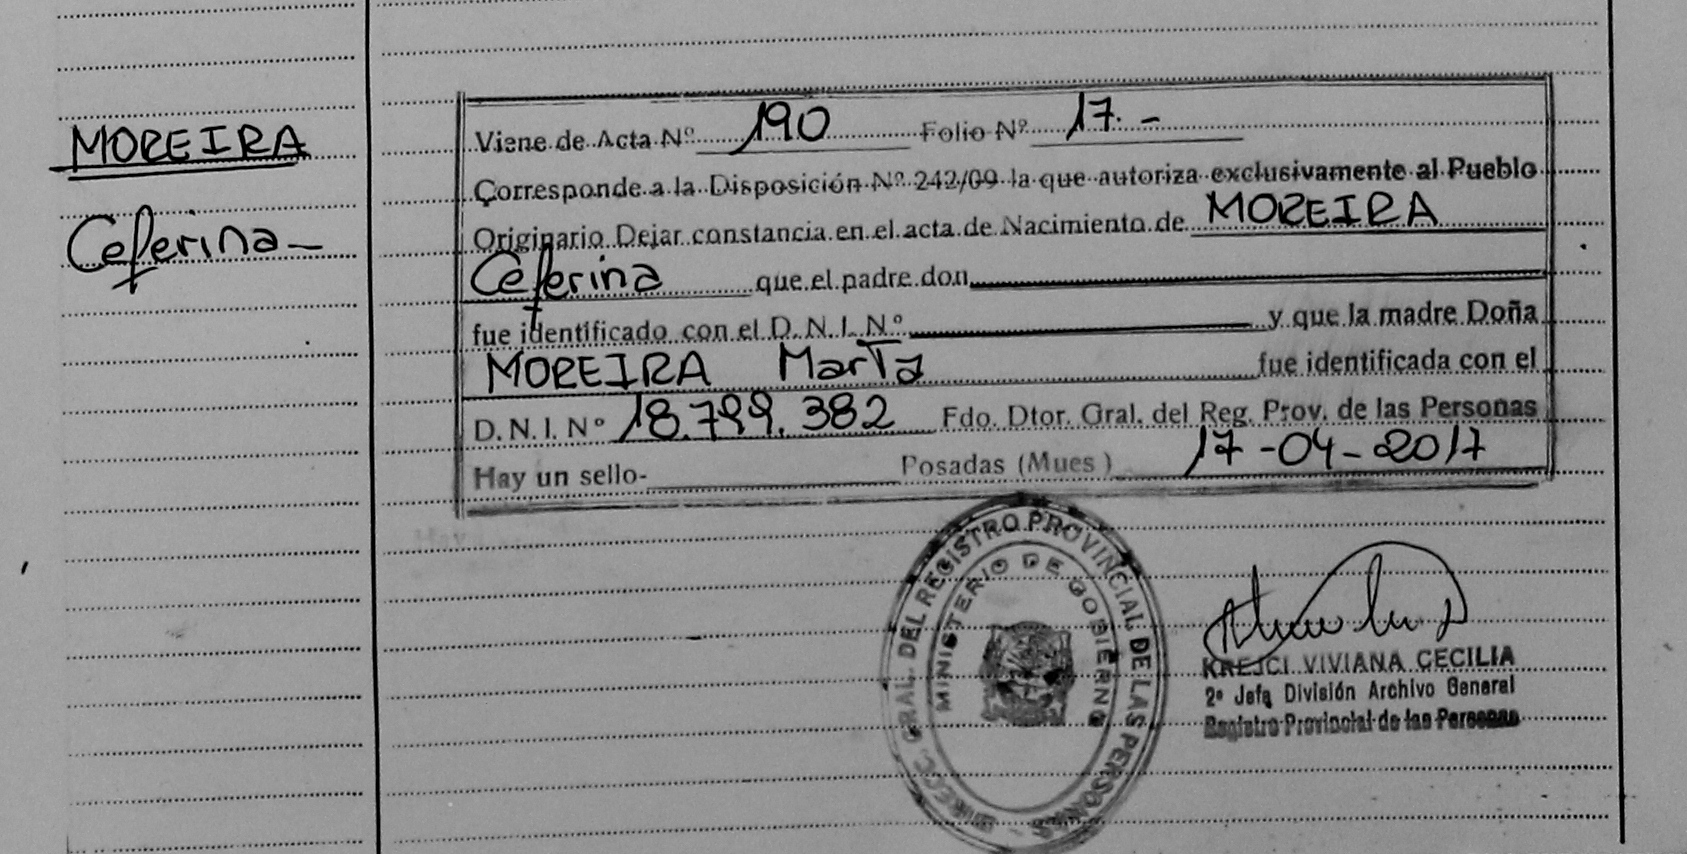 MOREIRA
Ceferina -
Viene de Acta Nº 190 Folio Nº 17.-
Corresponde a la Disposición Nº 242/09 la que autoriza exclusivamente al Pueblo
Originario Dejar constancia en el acta de Nacimiento de MOREIRA
Ceferina que el padre don
fue identificado con el D. N. I. Nº y que la madre Doña
MOREIRA Marta fue identificada con el
D. N. I. Nº 18.799.382 Fdo. Dtor. Gral. del Reg. Prov. de las Personas
Hay un sello- Posadas (Mnes) 17-04-2017
DIRECC. GRAL. DEL REGISTRO PROVINCIAL DE LAS PERSONAS
MINISTERIO DE GOBIERNO
KREJCI VIVIANA CECILIA
2º Jefa División Archivo General
Registro Provincial de las Personas